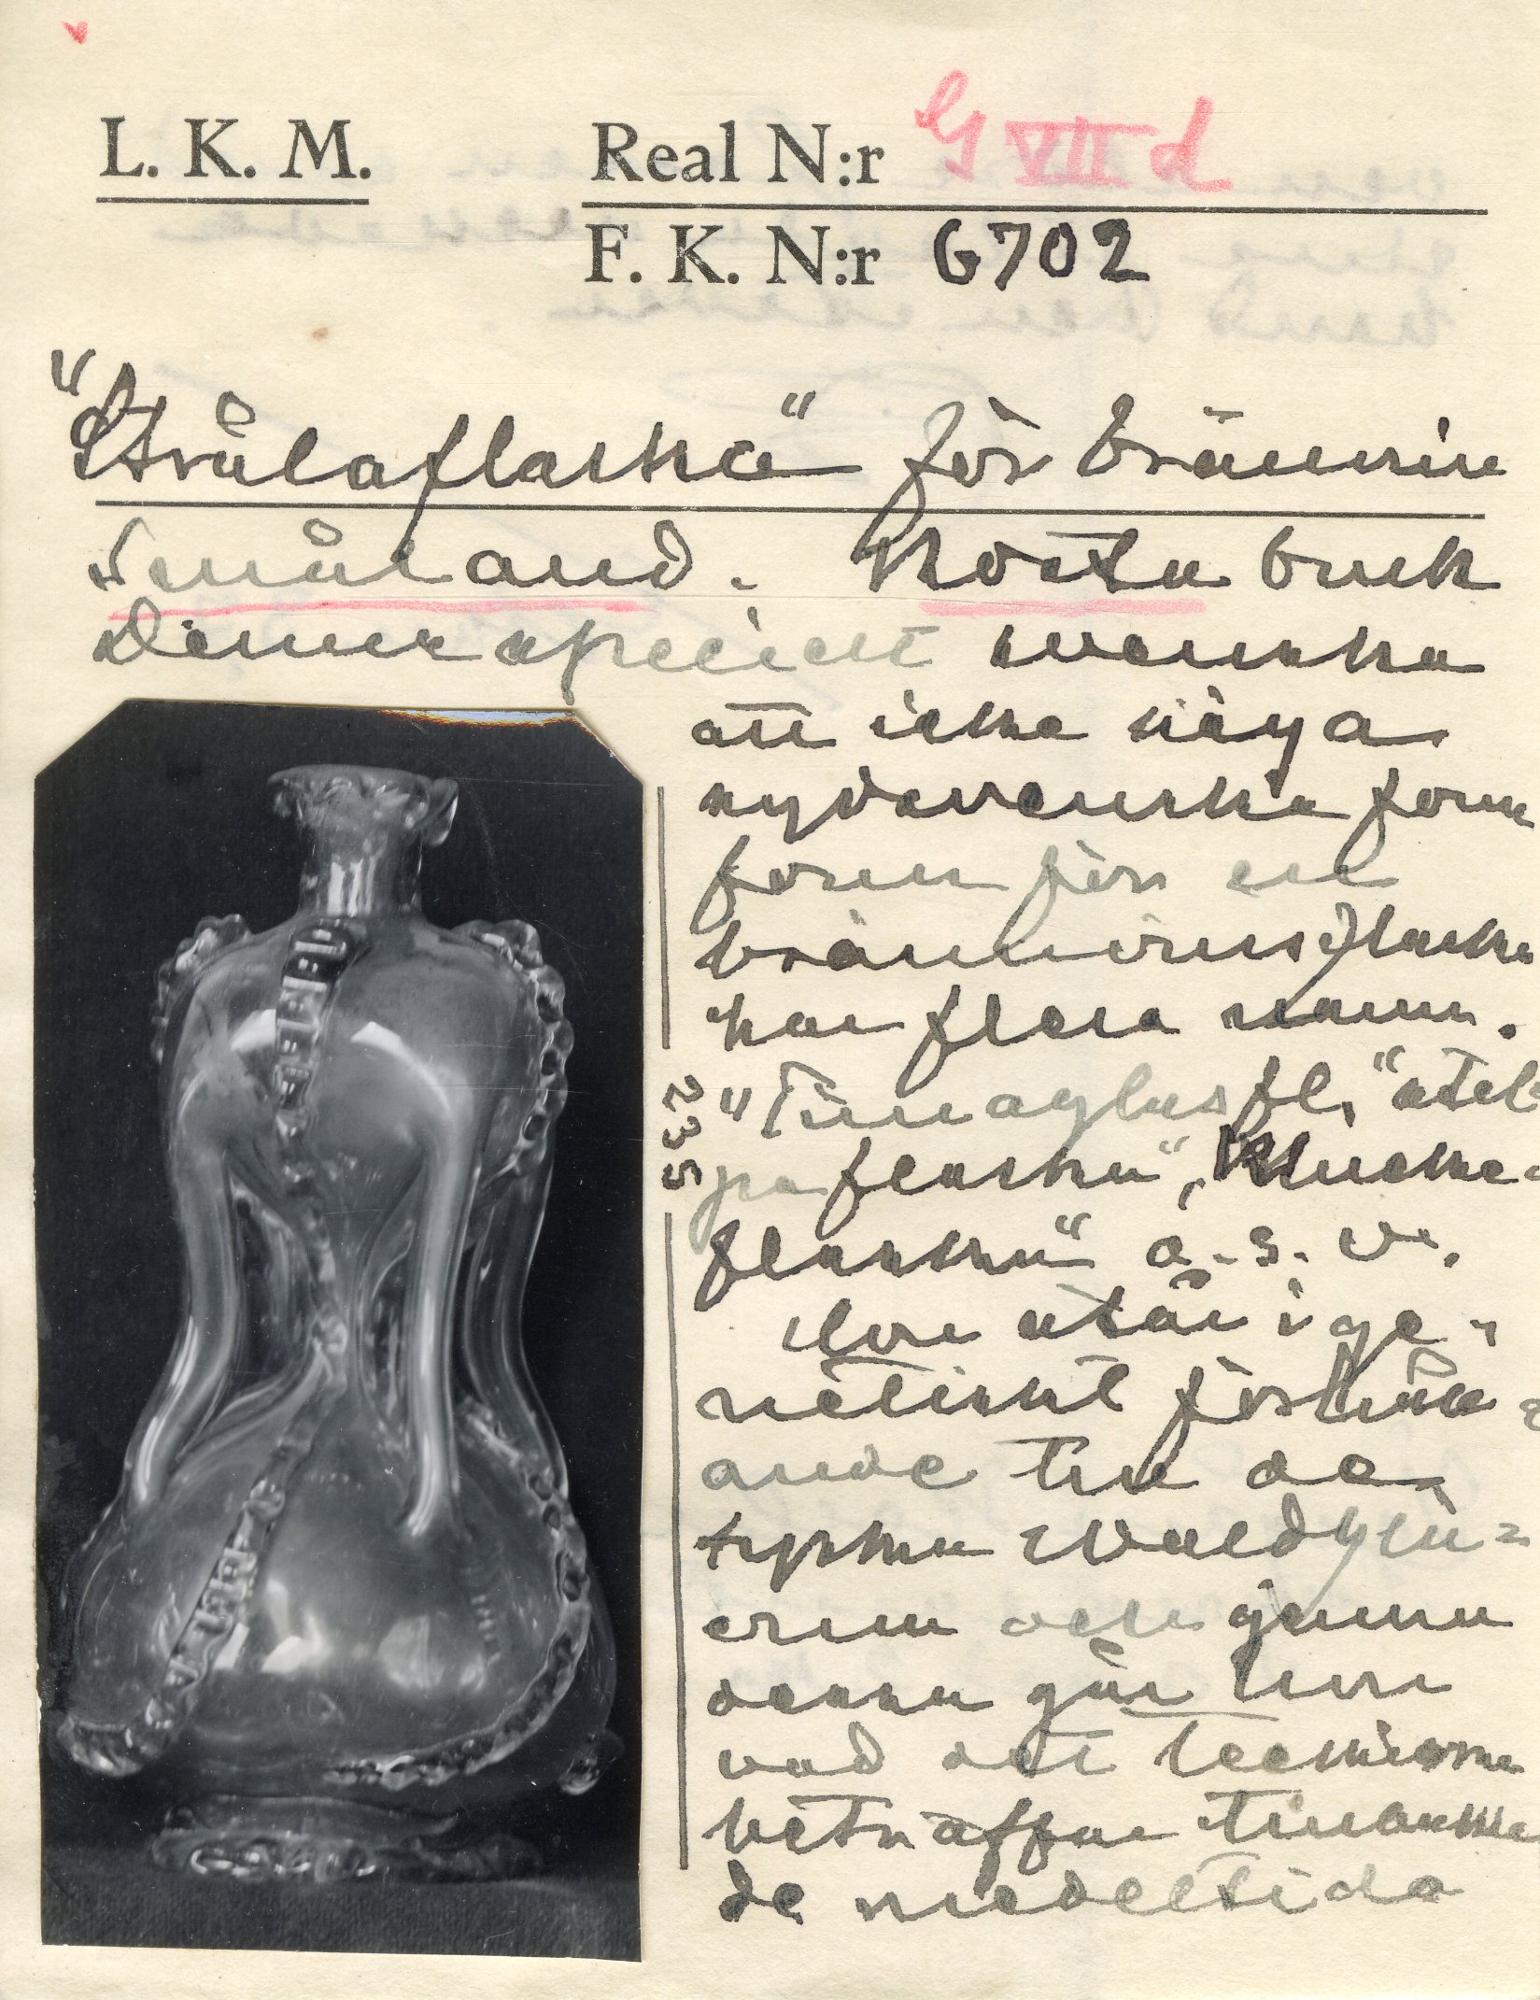 L. K. M.
Real N:r G VII d
F. K. N:r G702
"Strålaflaska" för brännvin
Småland. Kosta bruk
Denna speciellt svenska
att icke säga
sydsvenska form
form för en
brännvinsflaska
har flera namn.
"Timaglasfl," "stel
pa flaska", Klucke-
flaska" o. s. v.
Den står i ge-
netiskt förhåll-
ande till de
tyska Waldglä-
sern och genom
dessa går linien
vad det tekniska
beträffar tillbaka
de medeltida
2535